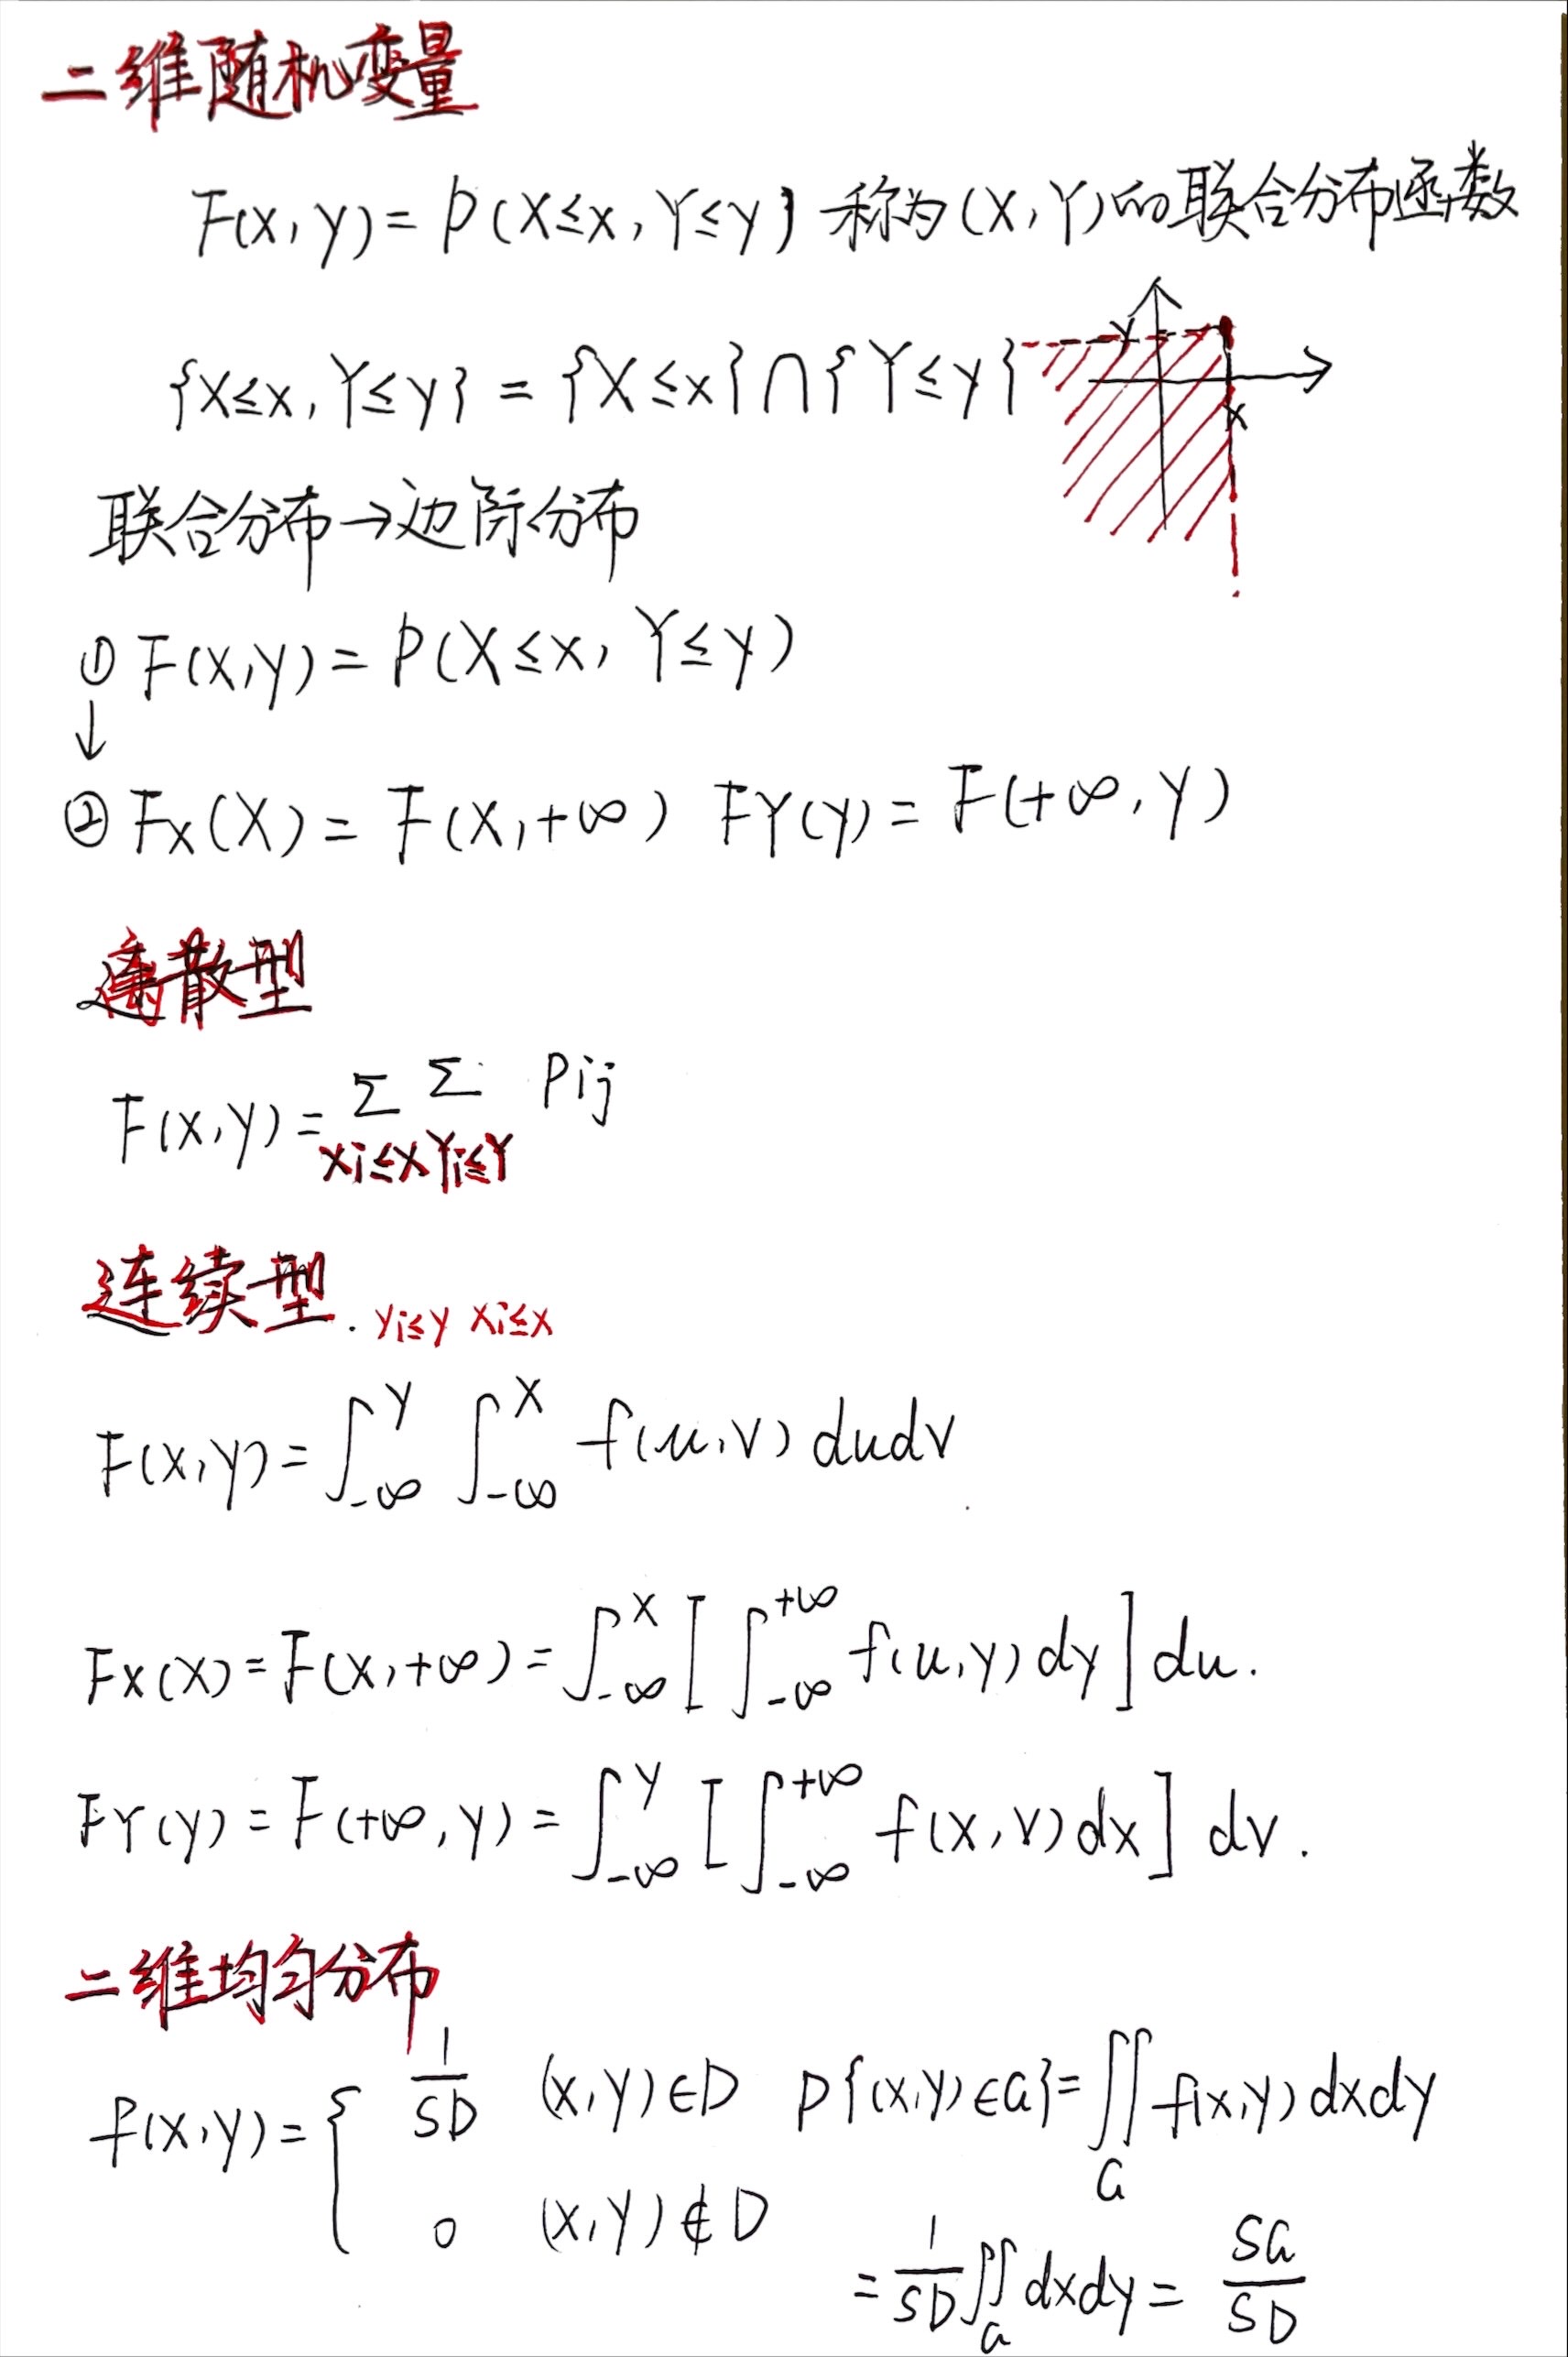 二维随机变量
F(x,y)=P(X≤x,Y≤y} 称为(X,Y)的联合分布函数
{X≤x,Y≤y}={X≤x}∩{Y≤y}
y
x
联合分布→边际分布
① F(x,y)=P(X≤x, Y≤y)
↓
② Fx(x)=F(x,+∞) FY(y)=F(+∞,y)
离散型
F(x,y)=Σ Σ Pij
xi≤x Yi≤Y
连续型. yi≤y xi≤x
F(x,y)=∫_{-∞}^{y} ∫_{-∞}^{x} f(u,v)dudv
Fx(x)=F(x,+∞)=∫_{-∞}^{x}[∫_{-∞}^{+∞} f(u,y)dy]du.
FY(y)=F(+∞,y)=∫_{-∞}^{y}[∫_{-∞}^{+∞} f(x,v)dx]dv.
二维均匀分布
f(x,y)={ 1/SD (x,y)∈D P{(x,y)∈G}=∬_G f(x,y)dxdy
0 (x,y)∉D
=1/SD ∬_G dxdy=SG/SD